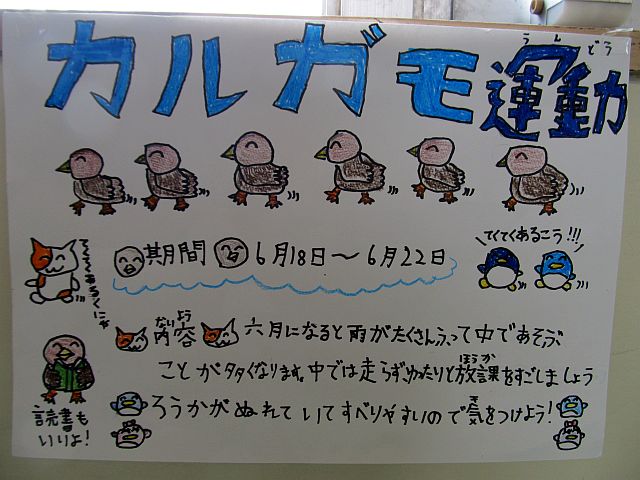 カルガモ運動
うんどう
期間 6月18日〜6月22日
てくてくあるこう!!!
てくてくあるくにゃ
ないよう
内容 六月になると雨がたくさんふって中であそぶ
ことが多くなります。中では走らずゆったりと放課をすごしましょう
ほうか
ろうかがぬれていてすべりやすいので気をつけよう!
き
読書も
いいよ!